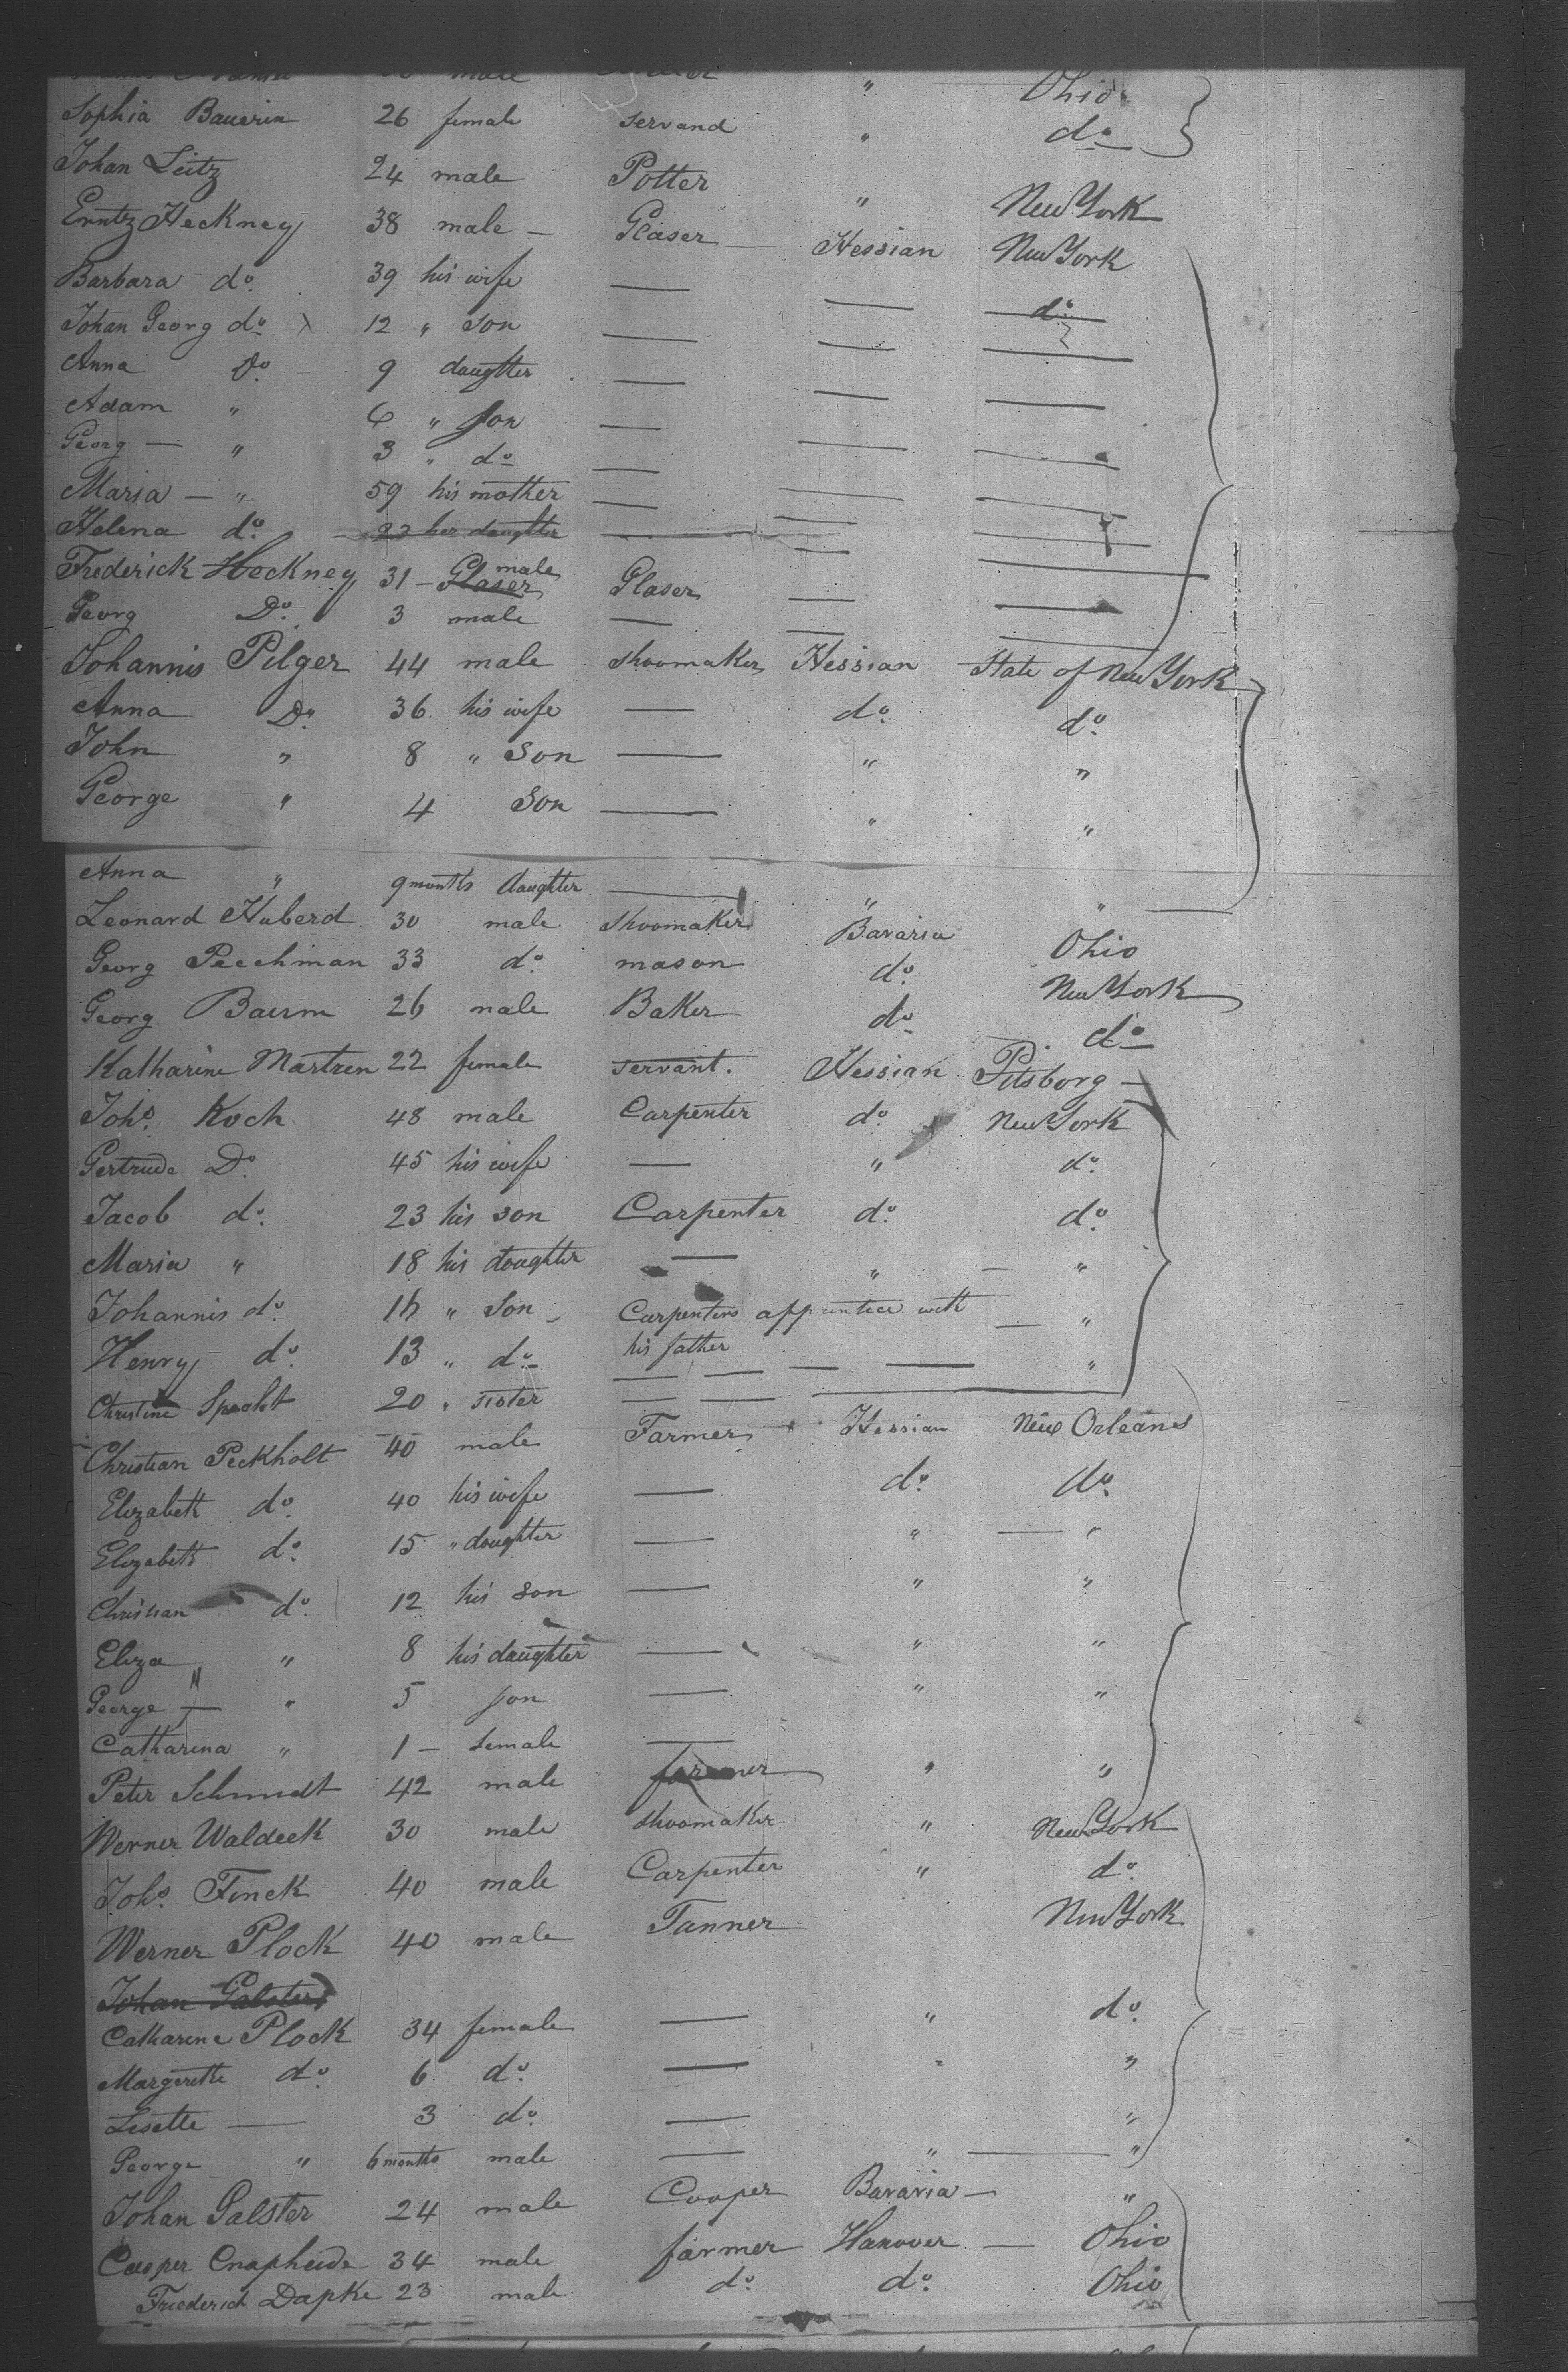 male " Ohio
Sophia Bauerin 26 female servand " do
Johan Leitz 24 male Potter " New York
Erntz Heckney 38 male — Glaser — Hessian New York
Barbara do. 39 his wife — — do
Johan Georg do. 12 " son — — —
Anna Do 9 daugtter — — —
Adam " 6 " son — — —
Georg — " 3 " do — — —
Maria — " 59 his mother — — —
Helena do. 22 her daugtter — — —
Frederick Heckney 31 — Glaser male Glaser — —
Georg Do. 3 male — — —
Johannis Pilger 44 male shoomaker Hessian State of New York
Anna Do 36 his wife — do. do.
John " 8 " Son — " "
George " 4 Son — " "
Anna " 9 months daughter — " " —
Leonard Huberd 30 male Shoomaker Bavaria Ohio
Georg Peechman 33 do. mason do. New York
Georg Baurm 26 male Baker do do
Katharine Martzen 22 female servant. Hessian Pitsborg —
Johs. Koch 48 male Carpenter do. New York
Gertrude Do 45 his wife — " do.
Jacob do. 23 his son Carpenter do. do.
Maria " 18 his daughter — " — "
Johannis do. 16 " Son — Carpenters apprintice with — "
Henry do. 13 " do his father — — — "
Christine Specht 20 " sister — — —
Christian Peckholt 40 male Farmer Hessian New Orleans
Elizabeth do. 40 his wife — do. do.
Elizabeth do. 15 " daughter — " — "
Christian do. 12 his son — " "
Eliza " 8 his daughter — " "
George — " 5 son — " "
Catharina " 1 — female —
Peter Schmidt 42 male farmer " "
Werner Waldeck 30 male shoomaker " New York
Johs. Finck 40 male Carpenter " do.
Werner Plock 40 male Tanner New York
Johan Galster
Catharine Plock 34 female — " do.
Margerethe do. 6 do. — " "
Lisette — 3 do. — "
George " 6 months male — " — "
Johan Galster 24 male Cooper Bavaria — "
Casper Cnapheide 34 male farmer Hanover — Ohio
Friederich Dapke 23 male do. do. Ohio